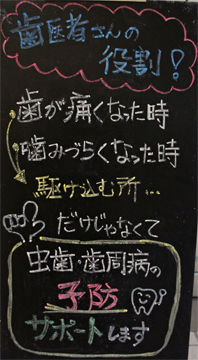 歯医者さんの
役割!
歯が痛くなった時
噛みづらくなった時
駆け込む所…
だけじゃなくて
虫歯・歯周病の
予防
サポートします